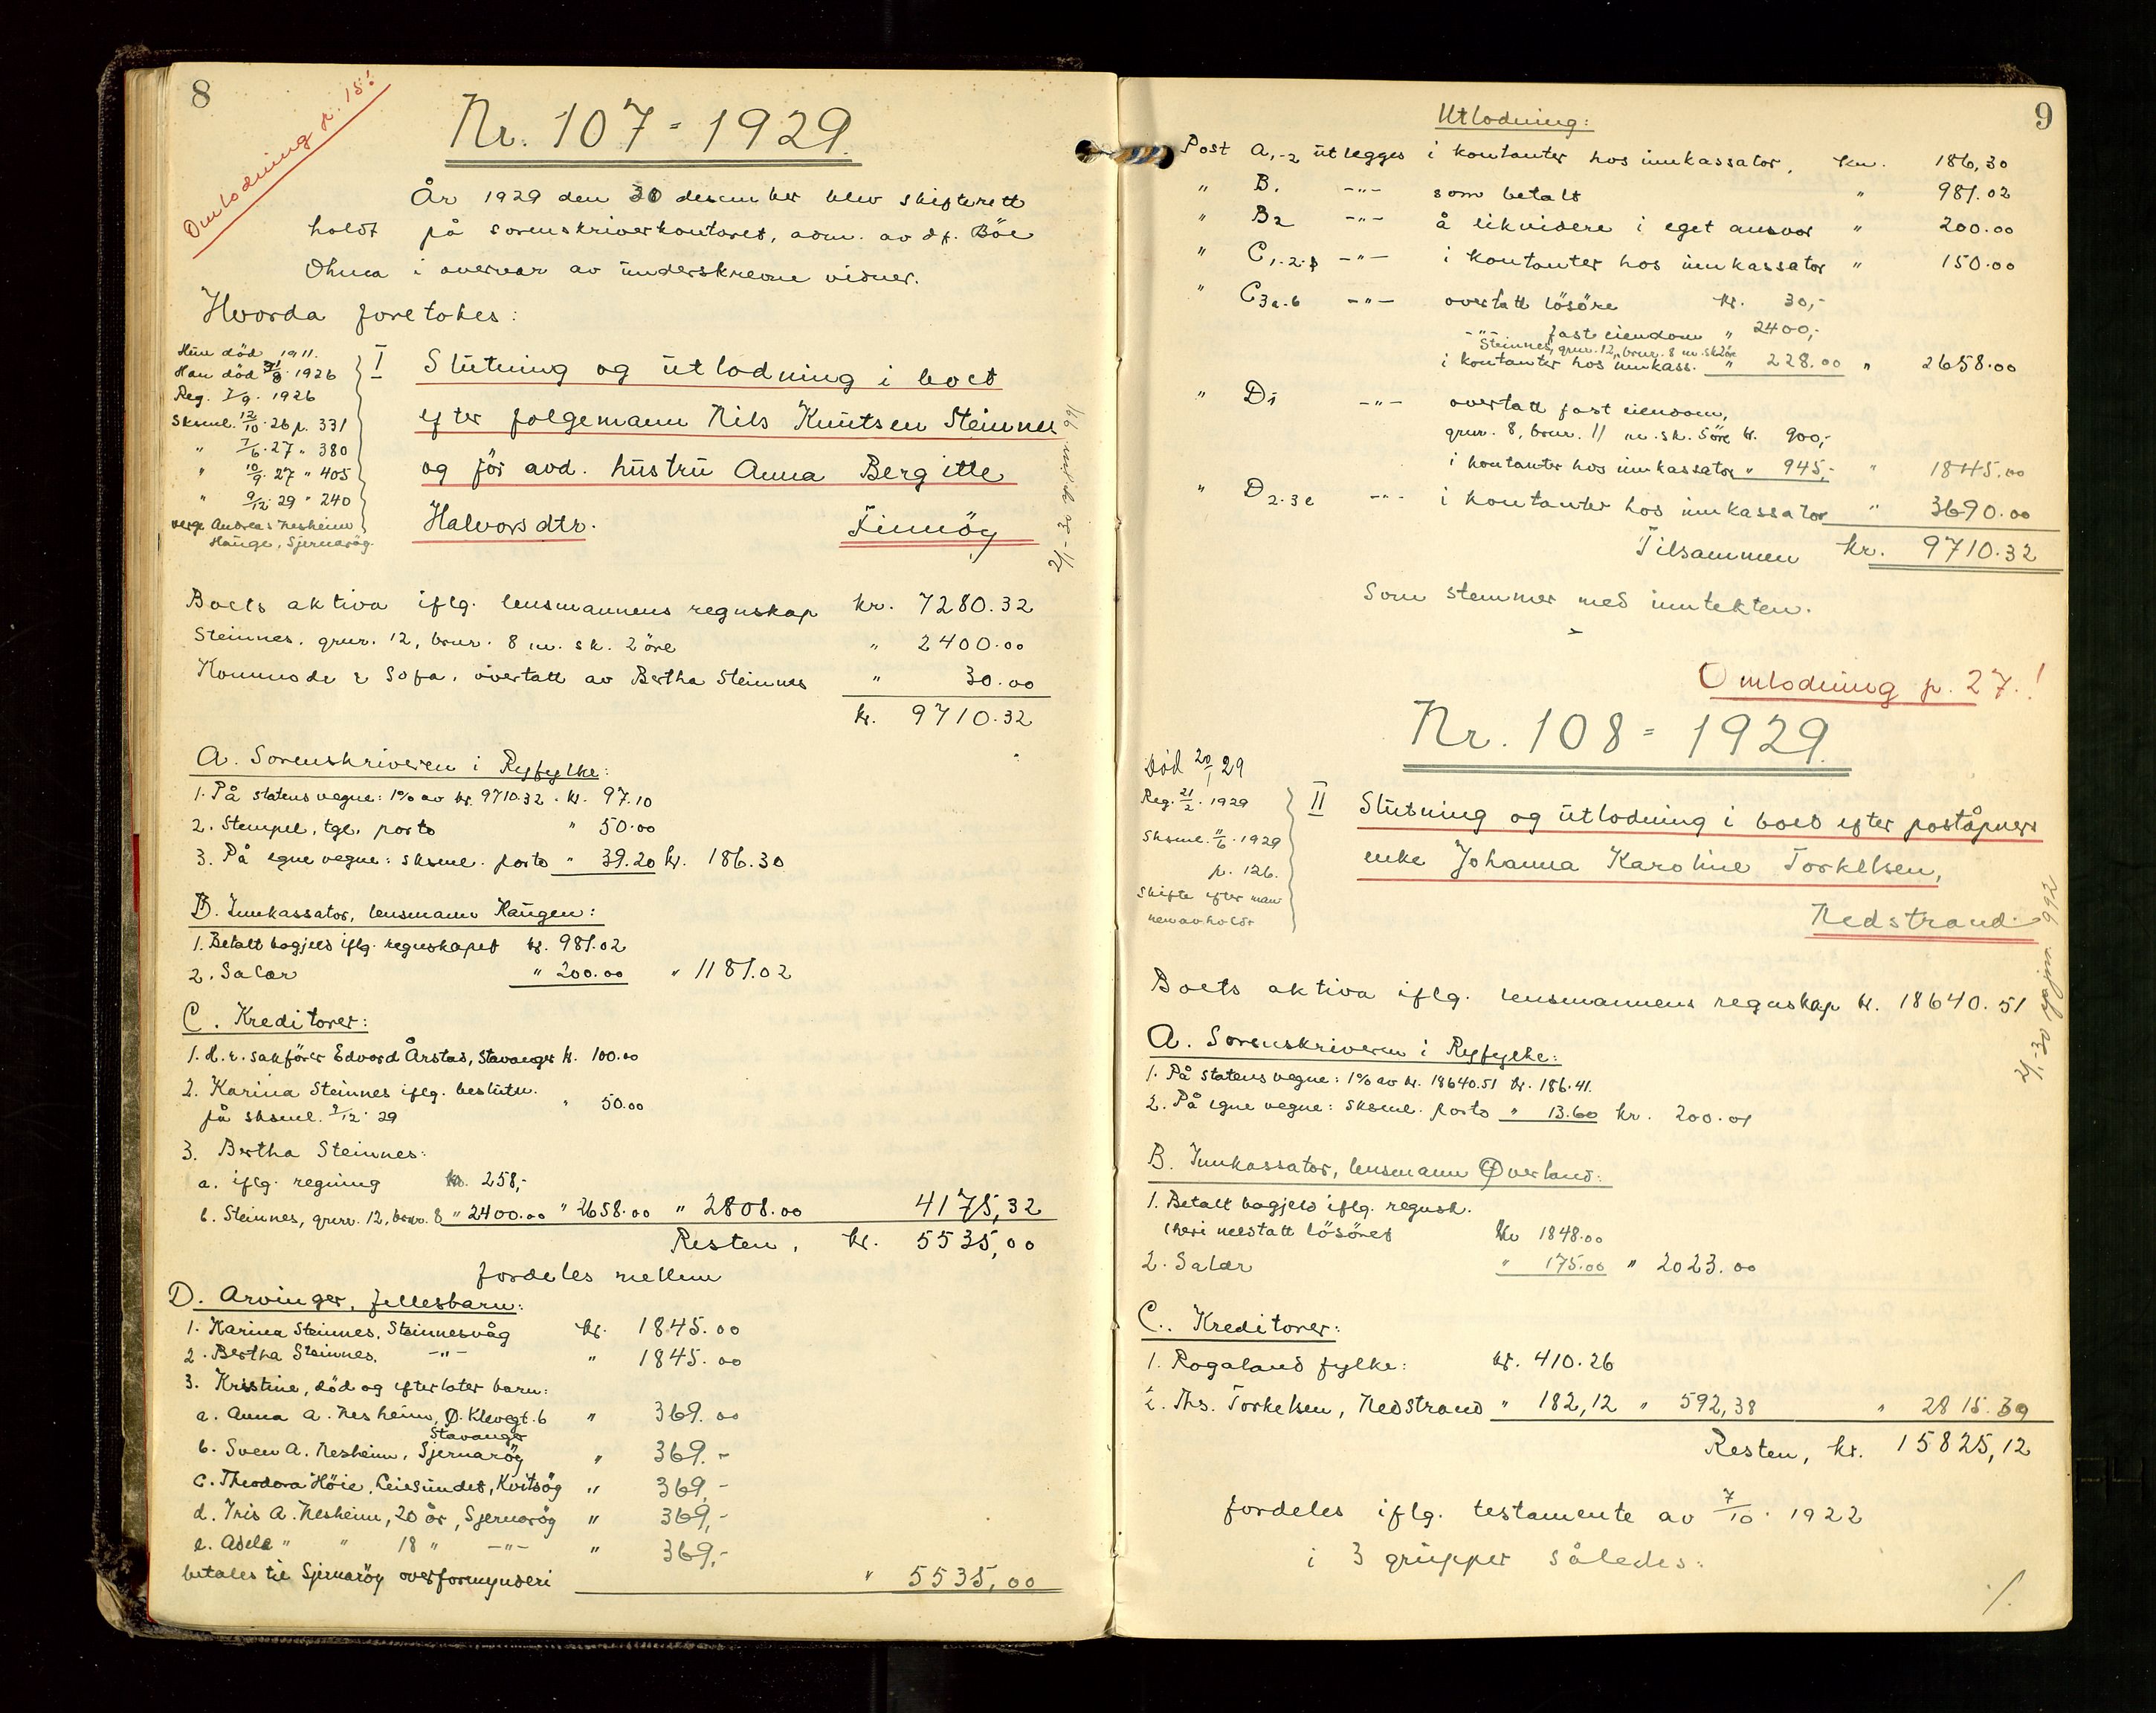 8
Omlodning p. 15!
Nr. 107 - 1929.
År 1929 den 30 desember blev skifterett
holdt på sorenskriverkontoret, adm. av df. Böe
Ohma i overvær av underskrevne vidner.
Hvorda foretokes:
Hun död 1911.
Han död 31/8 1926
Reg. 7/9. 1926
Sksml. 12/10. 26 p. 331
" 7/6. 27 " 380
" 10/9. 27 " 405
" 9/12. 29 " 240
verge Andreas Nesheim
Hauge, Sjernaröy.
I Slutning og utlodning i boet
efter folgemann Nils Knutsen Steinnes
og før avd. hustru Anna Bergitte
Halvorsdtr. Finnöy
2/1-30 gjenn. 991
Boets aktiva iflg. lensmannens regnskap kr. 7280.32
Steinnes, grnr. 12, brnr. 8 m. sk. 2 öre " 2400.00
Kommode & Sofa, overtatt av Bertha Steinnes " 30.00
kr. 9710.32
A. Sorenskriveren i Ryfylke:
1. På statens vegne: 1% av kr. 9710.32 . kr. 97.10
2. Stempel, tgl. porto " 50.00
3. På egne vegne: sksml. porto " 39.20 kr. 186.30
B. Innkassator, lensmann Haugen:
1. Betalt bogjeld iflg. regnskapet kr. 981.02
2. Salær " 200.00 " 1181.02
C. Kreditorer:
1. H.r. sakförer Edvard Årstad, Stavanger kr. 100.00
2. Karina Steinnes iflg. beslutn.
på sksml. 9/12. 29 " 50.00
3. Bertha Steinnes:
a. iflg. regning kr. 258,-
b. Steinnes, grnr. 12, brnr. 8 " 2400.00 " 2658.00 " 2808.00 4175,32
Resten, kr. 5535,00
fordeles mellem
D. Arvinger, fellesbarn:
1. Karina Steinnes, Steinnesvåg kr. 1845.00
2. Bertha Steinnes, -"- " 1845.00
3. Kristine, död og efterlater barn:
a. Anna A. Nesheim, Ø. Klevegt. 6 " 369.00
Stavanger
b. Sven A. Nesheim, Sjernaröy " 369.-
c. Theodora Höie, Leiesundet, Kvitsöy " 369,-
d. Iris A. Nesheim, 20 år, Sjernaröy " 369,-
e. Adele " " 18 " -"- " 369,-
betales til Sjernaröy overformynderi " 5535,00
9
Utlodning:
Post A1-2 utlegges i kontanter hos innkassator, kr. 186,30
" B1 -"- som betalt " 981.02
" B2 -"- å likvidere i eget ansvar " 200.00
" C1-2 -"- i kontanter hos innkassator " 150.00
" C3a-b -"- overtatt lösöre kr. 30,-
-"- fast eiendom " 2400,-
Steinnes, grnr. 12, brnr. 8 m. sk 2 öre
i kontanter hos innkass. " 228.00 " 2658.00
" D1 -"- overtatt fast eiendom,
grnr. 8, brnr. 11 m. sk. 5 öre kr. 900,-
i kontanter hos innkassator " 945,- " 1845.00
" D2-3e -"- i kontanter hos innkassator " 3690.00
Tilsammen kr. 9710.32
Som stemmer med inntekten.
Omlodning p. 27.!
Nr. 108 - 1929.
Död 20/1 29
Reg. 21/2. 1929
Sksml. 11/6. 1929
p. 126.
Skifte efter man-
nen avholdt
II Slutning og utlodning i boet efter poståpner
enke Johanna Karoline Torkelsen,
Nedstrand.
2/1-30 gjenn. 992
Boets aktiva iflg. lensmannens regnskap kr. 18640.51
A. Sorenskriveren i Ryfylke:
1. På statens vegne: 1% av kr. 18640.51 kr. 186.41.
2. På egne vegne: sksml. porto " 13.60 kr. 200.01
B. Innkassator, lensmann Øverland:
1. Betalt bogjeld iflg. regnsk.
(heri medtatt lösöret kr 1848.00
2. Salær " 175.00 " 2023.00
C. Kreditorer:
1. Rogaland fylke: kr. 410.26
2. Ths. Torkelsen, Nedstrand " 182,12 " 592,38 " 2815.39
Resten, kr. 15825,12
fordeles iflg. testamente av 7/10. 1922
i 3 grupper således:
./.